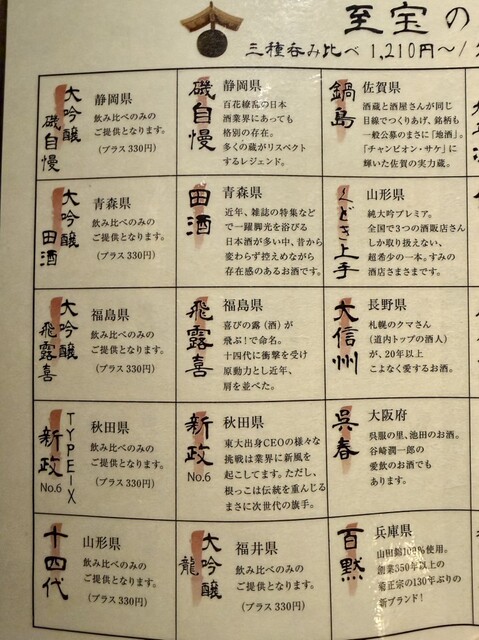 至宝の
三種呑み比べ 1,210円〜/
大吟醸 磯自慢
静岡県
飲み比べのみの
ご提供となります。
(プラス330円)
磯自慢
静岡県
百花繚乱の日本
酒業界にあっても
格別の存在。
多くの蔵がリスペクト
するレジェンド。
鍋島
佐賀県
酒蔵と酒屋さんが同じ
目線でつくりあげ、銘柄も
一般公募のまさに「地酒」。
「チャンピオン・サケ」に
輝いた佐賀の実力蔵。
大吟醸 田酒
青森県
飲み比べのみの
ご提供となります。
(プラス330円)
田酒
青森県
近年、雑誌の特集など
で一躍脚光を浴びる
日本酒が多い中、昔から
変わらず控えめながら
存在感のあるお酒です。
くどき上手
山形県
純大吟プレミア。
全国で3つの酒販店さん
しか取り扱えない、
超希少の一本。すみの
酒店さまさまです。
大吟醸 飛露喜
福島県
飲み比べのみの
ご提供となります。
(プラス330円)
飛露喜
福島県
喜びの露(酒)が
飛ぶ!で命名。
十四代に衝撃を受け
原動力とし近年、
肩を並べた。
大信州
長野県
札幌のクマさん
(道内トップの酒人)
が、20年以上
こよなく愛するお酒。
新政 No.6 TYPE-X
秋田県
飲み比べのみの
ご提供となります。
(プラス330円)
新政 No.6
秋田県
東大出身CEOの様々な
挑戦は業界に新風を
起こしてます。ただし、
根っこは伝統を重んじる
まさに次世代の旗手。
呉春
大阪府
呉服の里、池田のお酒。
谷崎潤一郎の
愛飲のお酒でも
あります。
十四代
山形県
飲み比べのみの
ご提供となります。
(プラス330円)
大吟醸 龍
福井県
飲み比べのみの
ご提供となります。
(プラス330円)
百黙
兵庫県
山田錦100%使用。
創業350年以上の
菊正宗の130年ぶりの
新ブランド!